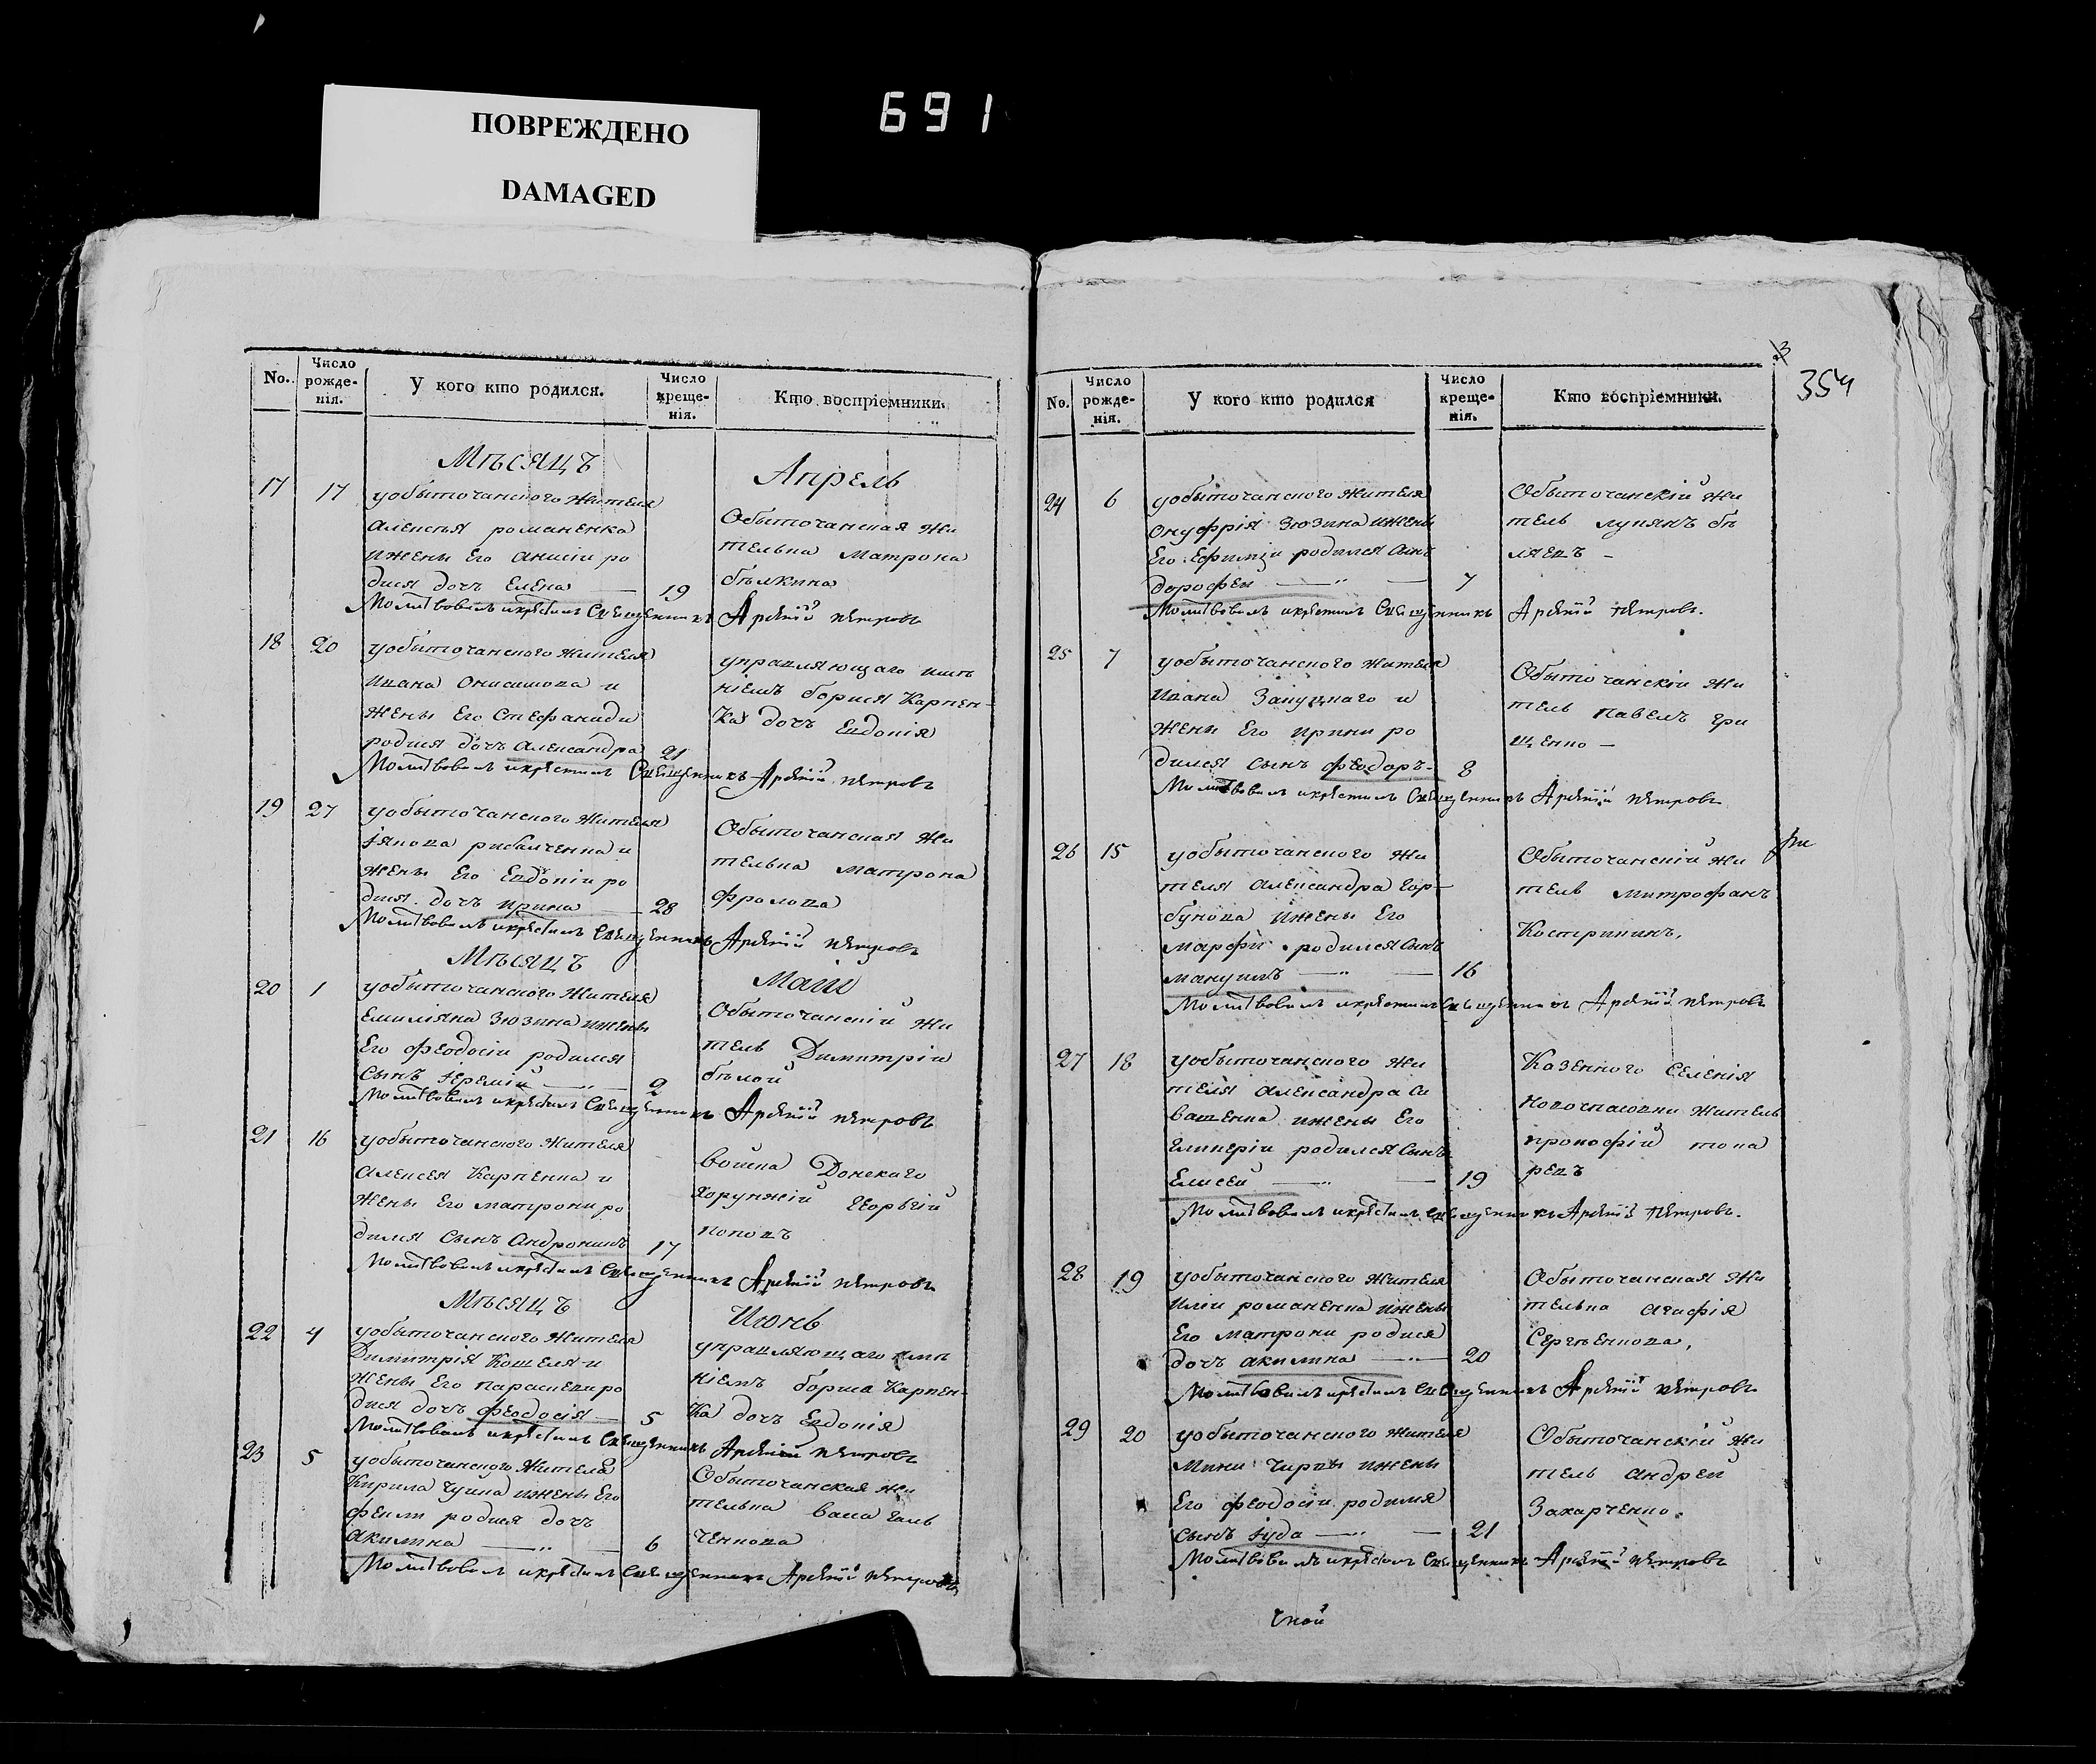 ПОВРЕЖДЕНО
DAMAGED
691
No.
Число рожде-нія.
У кого кто родился.
Число креще-нія.
Кто воспріемники.
Мѣсяцъ
Апрель
17
17
уобыточанского жителя
алексѣя романенка
ижены Его анисіи ро
дися дочь Елена
19
Обыточанская жи
телька матрона
бѣлкина
Молитвовалъ икрестилъ Священникъ Арсеній петровъ
18
20
уобыточанского жителя
ивана Онисимова и
жены Его Стефаниди
родися дочь александра
21
управляющаго имѣ
ніемъ бориса Карпен-
ка дочь Евдокія
Молитвовалъ икрестилъ Священникъ Арсеній петровъ
19
27
уобыточанского жителя
іякова рибалченка и
жены Его Евдокіи ро
дися дочь ирина
28
Обыточанская жи
телька матрона
фролова
Молитвовалъ икрестилъ Священникъ Арсеній петровъ
Мѣсяцъ
Маій
20
1
уобыточанского жителя
Емиліяна Зюзина ижены
Его феодосіи родился
сынъ іеремій
2
Обыточанскій жи
тель Димитрій
бѣлой
Молитвовалъ икрестилъ Священникъ Арсеній петровъ
21
16
уобыточанского жителя
алексея Карпенка и
жены Его матрони ро
дился сынъ андроникъ
17
войска Донскаго
хорунжій Георьгій
поповъ
Молитвовалъ икрестилъ Священникъ Арсеній петровъ
Мѣсяцъ
Июнь
22
4
уобыточанского жителя
Димитрія Кошеля и
жены Его параскеви ро
дися дочь феодосія
5
управляющаго имѣ
ніемъ бориса Карпен-
ка дочь Евдокія
Молитвовалъ икрестилъ Священникъ Арсеній петровъ
23
5
уобыточанского жителя
Кирила Чуика ижены Его
феклы родися дочь
акилина
6
Обыточанская жи
телька
ченкова
Молитвовалъ икрестилъ Священникъ Арсеній петровъ
354
No.
Число рожде-нія.
У кого кто родился
Число креще-нія.
Кто воспріемники.
24
6
уобыточанского жителя
онуфрія Зюзина ижены
Его Ефиміи родился синъ
дорофей
7
Обыточанскій жи
тель лукянъ бѣ
ляевъ
Молитвовалъ икрестилъ Священникъ Арсеній петровъ.
25
7
уобыточанского жителя
ивана Закуцкаго и
жены Его ирини ро
дился сынъ феодоръ
8
Обыточанскій жи
тель павелъ гри
щенко
Молитвовалъ икрестилъ Священникъ Арсеній петровъ
26
15
уобыточанского жи
теля александра гор-
бунова ижены Его
марфи родился синъ
мануилъ
16
Обыточанскій жи
тель митрофанъ
Костринъ,
Молитвовалъ икрестилъ Священникъ Арсеній петровъ
27
18
уобыточанского жи
теля александра си
вашенка ижены Его
гликеріи родился синъ
Елисей
19
Казенного Селенія
новоспасовки житель
прокофій тока
ревъ
Молитвовалъ икрестилъ Священникъ Арсеній петровъ.
28
19
уобыточанского жителя
иліи романенка ижены
Его матрони родися
дочь акилина
20
Обыточанская жи
телька агафія
Сергѣенкова,
Молитвовалъ икрестилъ Священникъ Арсеній петровъ
29
20
уобыточанского жителя
мини чирвы ижены
Его феодосіи родился
сынъ іуда
21
Обыточанскій жи
тель андрей
Захарченко.
Молитвовалъ икрестилъ Священникъ Арсеній петровъ